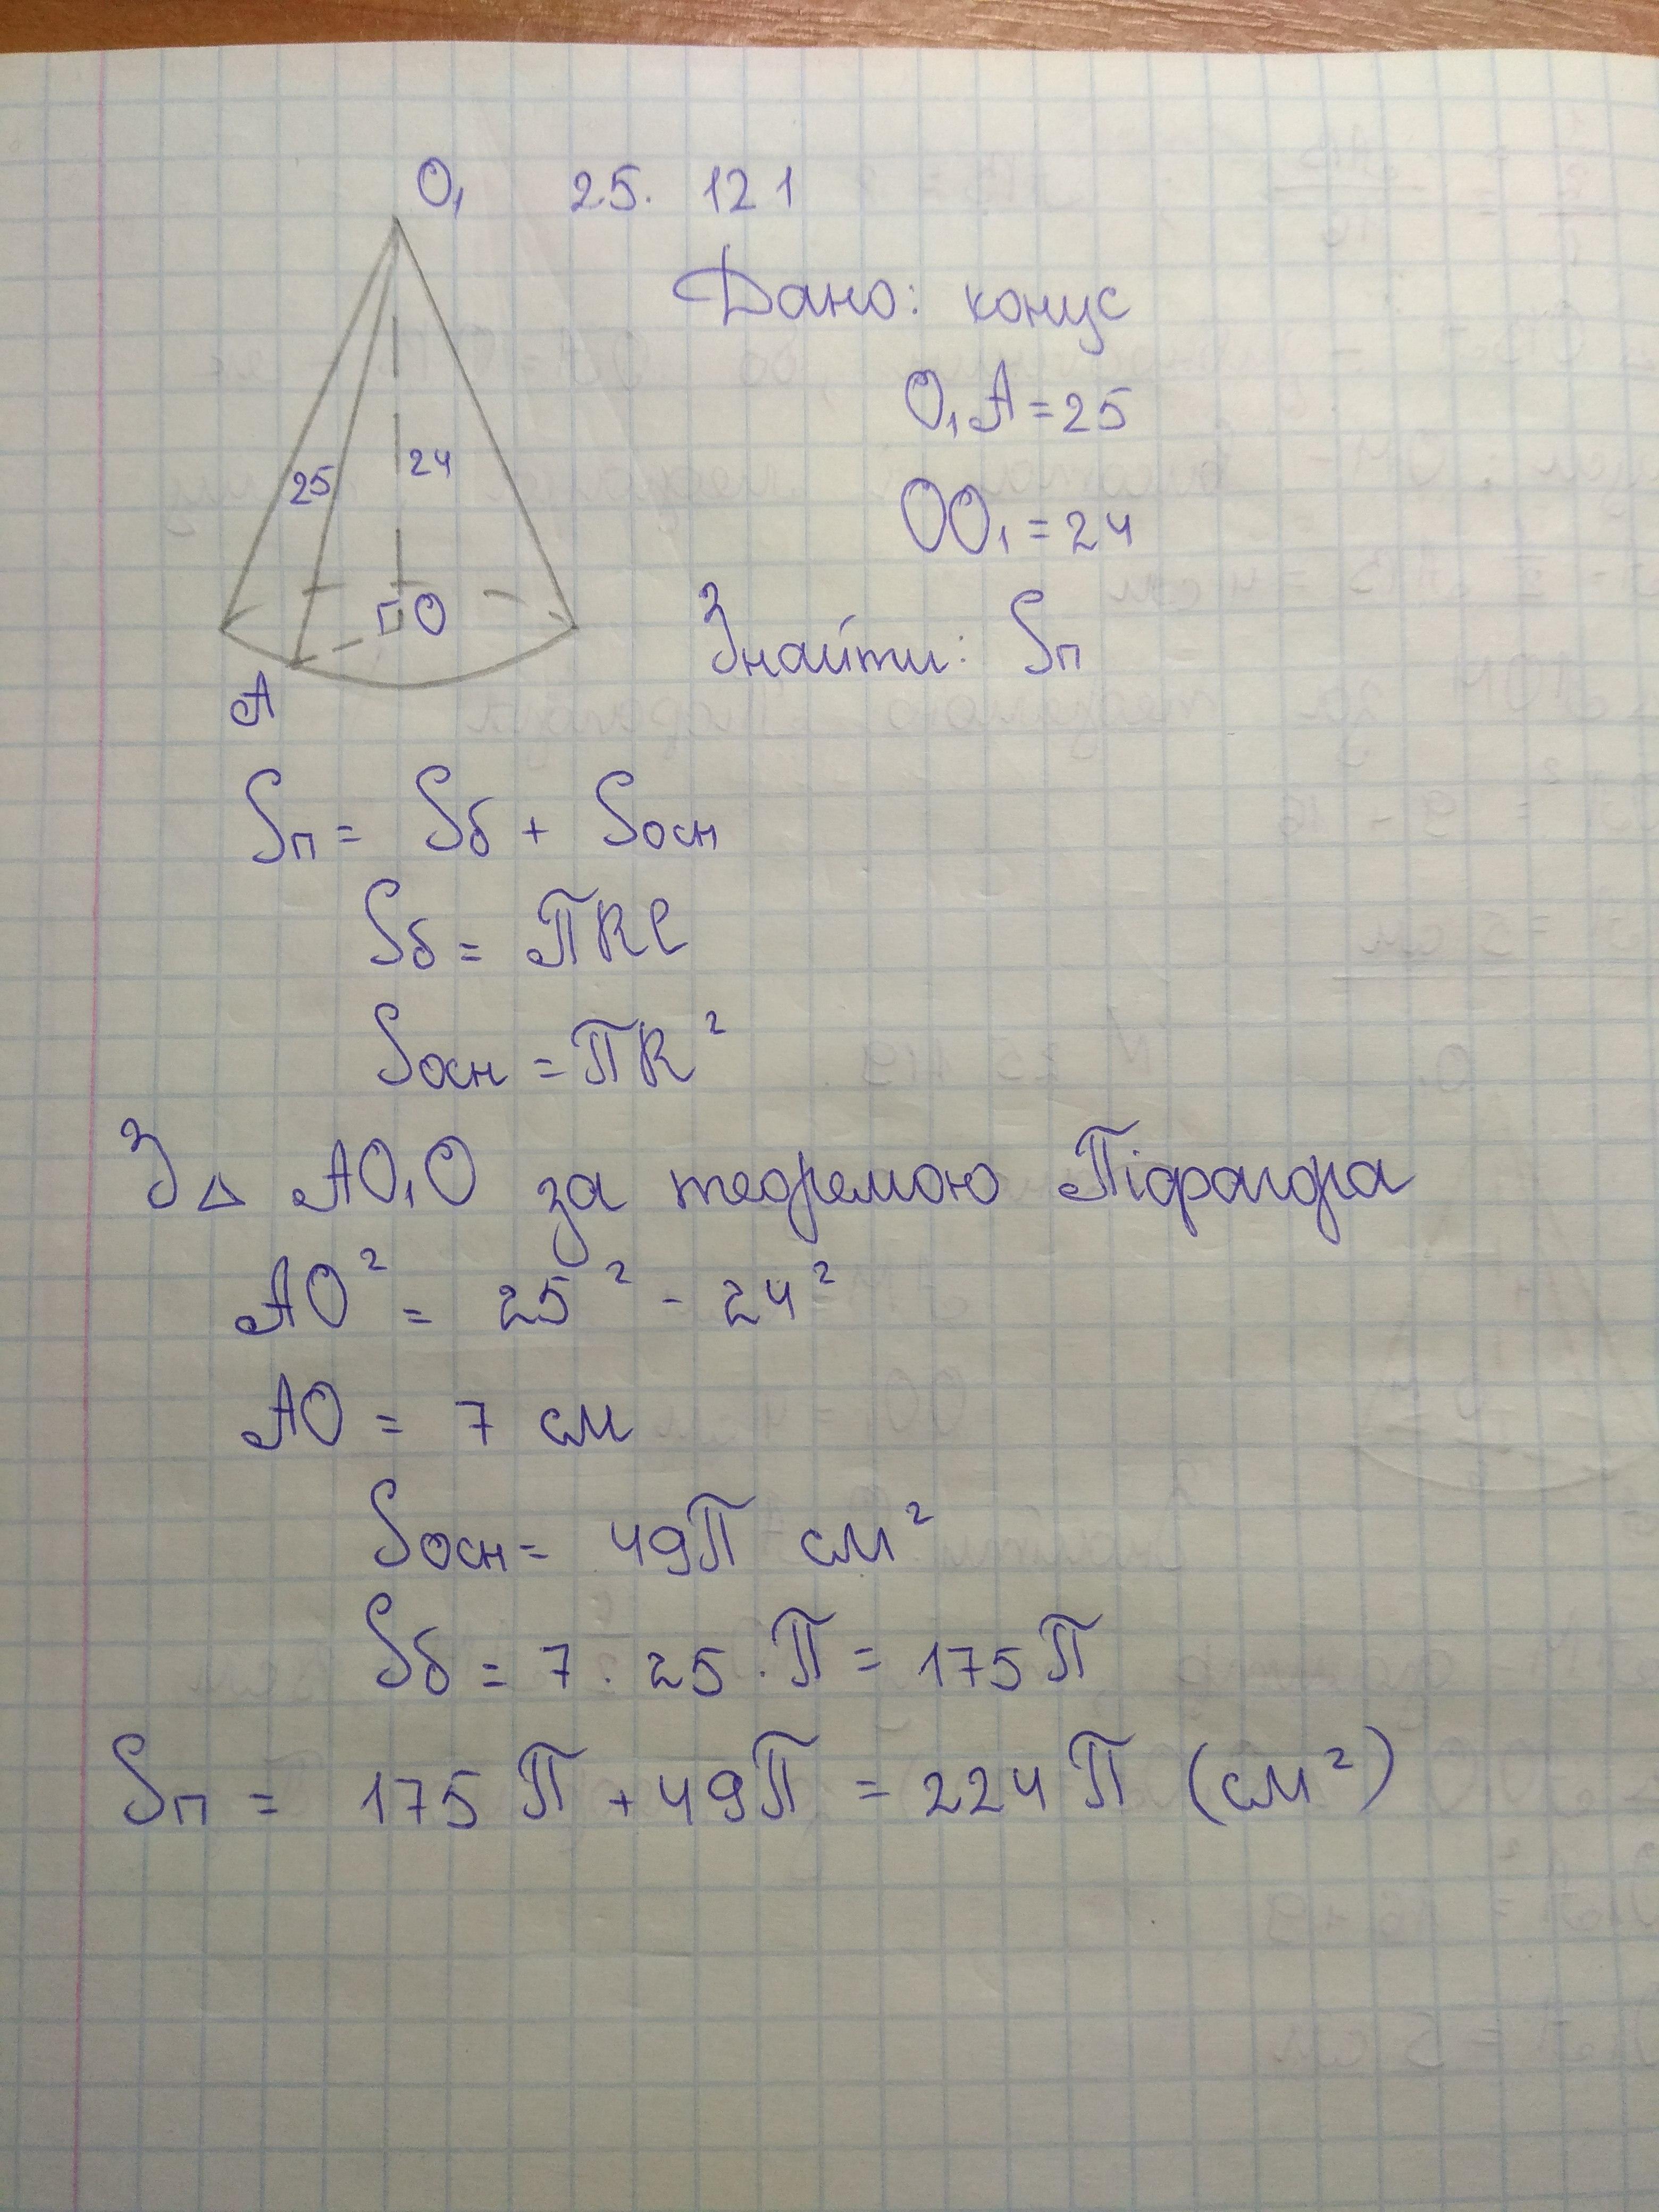 O₁ 25. 121
Дано: конус
O₁A = 25
OO₁ = 24
25
24
O
A
Знайти: Sп
Sп = Sб + Sосн
Sб = ПRℓ
Sосн = ПR²
З △ AO₁O за теоремою Піфагора
AO² = 25² - 24²
AO = 7 см
Sосн = 49П см²
Sб = 7 · 25 · П = 175П
Sп = 175П + 49П = 224П (см²)